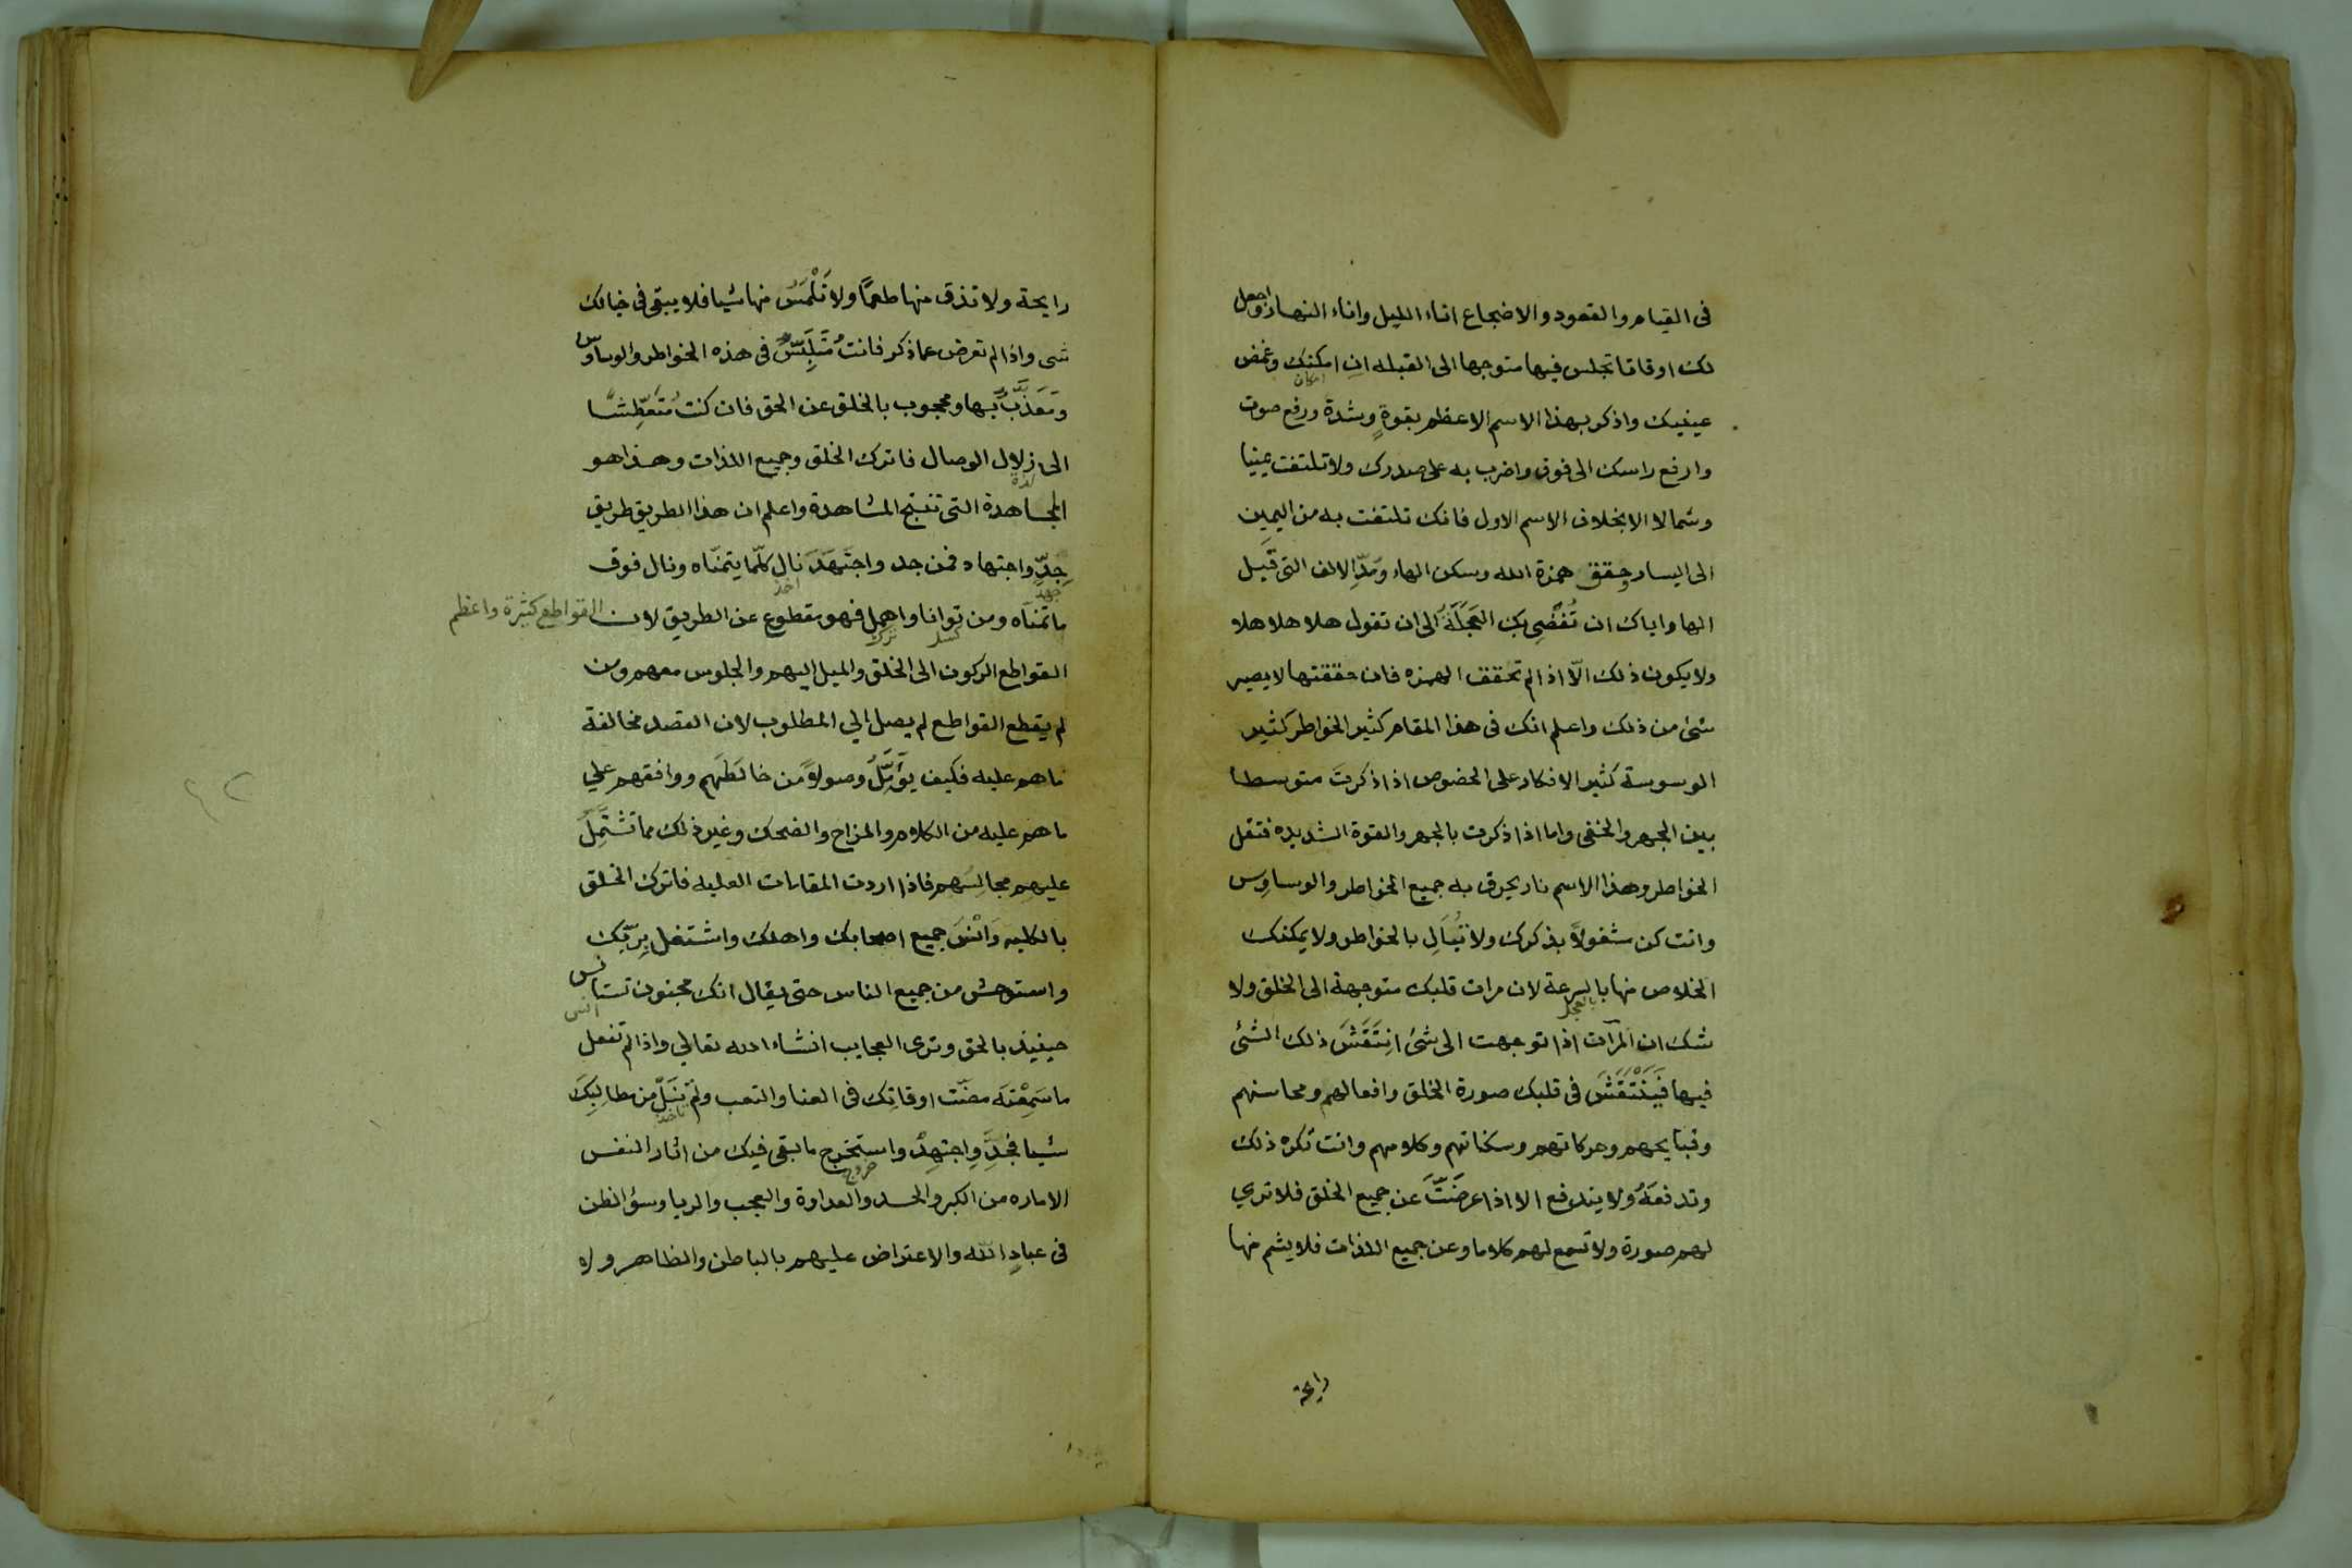 فى القيام والقعود والاضجاع اناء الليل واناء النهار واجعل
لك اوقاتا تجلس فيها متوجها الى القبله ان امكنك وغمض
امكان
عينيك واذكر بهذا الاسم الاعظم بقوةٍ وشدة ورفع صوت
وارفع راسك الى فوق واضرب به على صدرك ولا تلتفت يمينا
وشمالا الا بخلاف الاسم الاول فانك تلتفت به من اليمين
الى اليسار وحقق همزة الله وسكن الهاء ومدّ الالف التى قبل
الها واياك ان تُفْضِى بك العَجَلَةُ الى ان تقول هلا هلا هلا
ولا يكون ذلك الّا اذا لم تحقق الهمزه فان حققتها لا يصير
شئ من ذلك واعلم انك فى هذا المقام كثير الخواطر كثير
الوسوسة كثير الافكار على الخصوص اذا ذكرتَ متوسطا
بين الجهر والخفى واما اذا ذكرت بالجهر والقوة الشديده فتقل
الخواطر وهذا الاسم نار يحرق به جميع الخواطر والوساوِس
وانت كن مشغولاً بذكرك ولا تُبَالِ بالخواطر ولا يمكنك
الخلاص منها بالسرعة لان مرات قلبك متوجهة الى الخلق ولا
بالعجل
شك ان المرآت اذا توجهت الى شئ انِتَقَشَ ذلك الشئ
فيها فَيَنْتَقَشَ فى قلبك صورة الخلق وافعالهم ومحاسنهم
وقبايحهم وحركاتهم وسكناتهم وكلامهم وانت تكره ذلك
وتدفعَهُ ولا يندفع الا اذا اعرضَتَّ عن جميع الخلق فلا تري
لهم صورة ولا تسمع لهم كلاما وعن جميع اللذات فلا يشم منها
رايحة
رايحة ولا تذق منها طعمًا ولا تَلْمَسُ منها شيا فلا يبقى فى خيالك
شى واذا لم تعرض عما ذكر فانت مُتَلَبِّسٌ فى هذه الخواطر والوساوس
ومَعَذَّبٌ بها ومحجوب بالخلق عن الحق فان كنت مُتَعَطِّشًا
الى زلال الوصال فاترك الخلق وجميع اللذات وهذا هو
لذة
المجاهدة التى تنتج المشاهدة واعلم ان هذا الطريق طريق
جِدِّ واجتهاد فمن جد واجتَهَدَ نال كلّما يتمنّاه ونال فوق
جهد
اخذ
ما تمنّاه ومن توانا واهمل فهو مقطوع عن الطريق لان القواطع كثيرة واعظم
كسل
ترك
القواطع الركون الى الخلق والميل اليهم والجلوس معهم ومن
لم يقطع القواطع لم يصل الي المطلوب لان القصد مخالفة
ما هم عليه فكيف يؤَمِّلُ وصولاً من خالَطَهم ووافقهم علي
ما هم عليه من الكلام والمزاح والضحك وغير ذلك مما تشتَمِلُ
عليهم مجالِسُهم فاذا اردت المقامات العليه فاترك الخلق
بالكليه وَانْسَ جميع اصحابك واهلك واشتغل بِربّك
واستوحش من جميع الناس حتى يقال انك مجنون تستانس
انس
حينيذ بالحق وترى العجايب انشاء الله تعالي واذا لم تفعل
ما سَمِعْتَه مضت اوقاتِك فى العنا والتعب ولم تَنَلْ من مطالِبِكَ
تاخذ
شيا فجِدَّ واجتهِدْ واستخرج ما بقى فيك من اثار النفس
خروج
الاماره من الكبر والحسد والعداوة والعجب والريا وسؤ الظن
فى عبادِ الله والاعتراض عليهم بالباطن والظاهر ولا